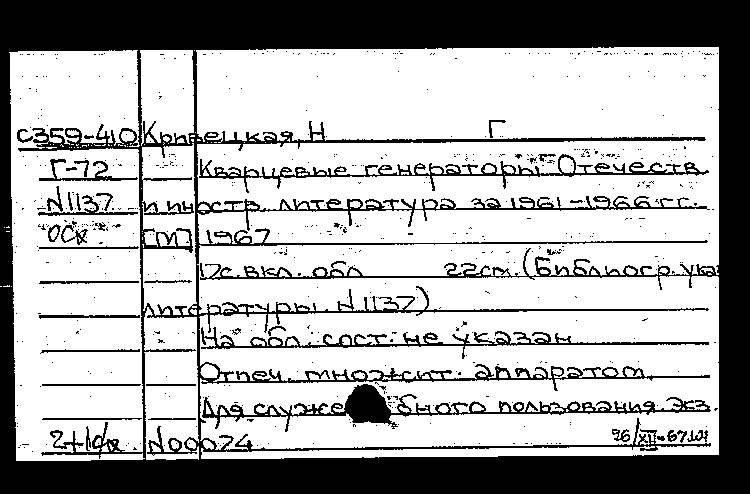 С359-410 Кривецкая, Н Г
Г-72 Кварцевые генераторы. Отечеств.
N1137 и иностр. литература за 1961-1966 гг.
ОСк [М] 1967
17с. вкл. обл 22см. (Библиогр. указ
литературы. N1137)
На обл.: сост. не указан
Отпеч. множит. аппаратом.
Для служебного пользования. Экз.
N00074